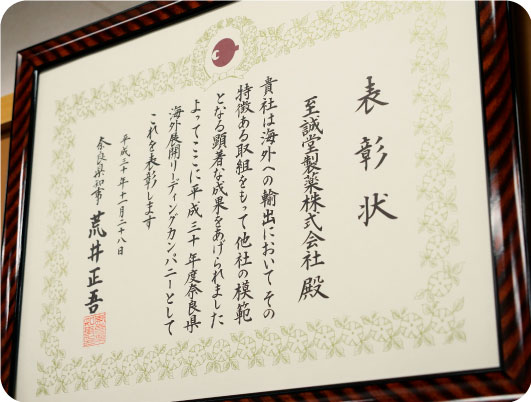 表彰状
至誠堂製薬株式会社 殿
貴社は海外への輸出において その
特徴ある取組をもって他社の模範
となる顕著な成果をあげられました
よってここに平成三十年度奈良県
海外展開リーディングカンパニーとして
これを表彰します
平成三十年十一月二十八日
奈良県知事 荒井正吾